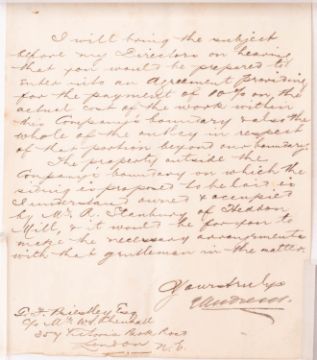 I will bring the subject
before my Directors on hearing
that you would be prepared to
enter into an Agreement providing
for the payment of 10% on the
actual cost of the work within
this Company's boundary & also the
whole of the outlay in respect
of that portion beyond our boundary.
The property outside the
Company's boundary on which the
siding is proposed to be laid is
I understand owned & occupied
by Mr. R. Stanbury of
Mill, & it would be for you to
make the necessary arrangements
with that gentleman in the matter.
Yours truly
D. J. Priestley Esq
c/o Mr
Victoria Park Road
London N.E.